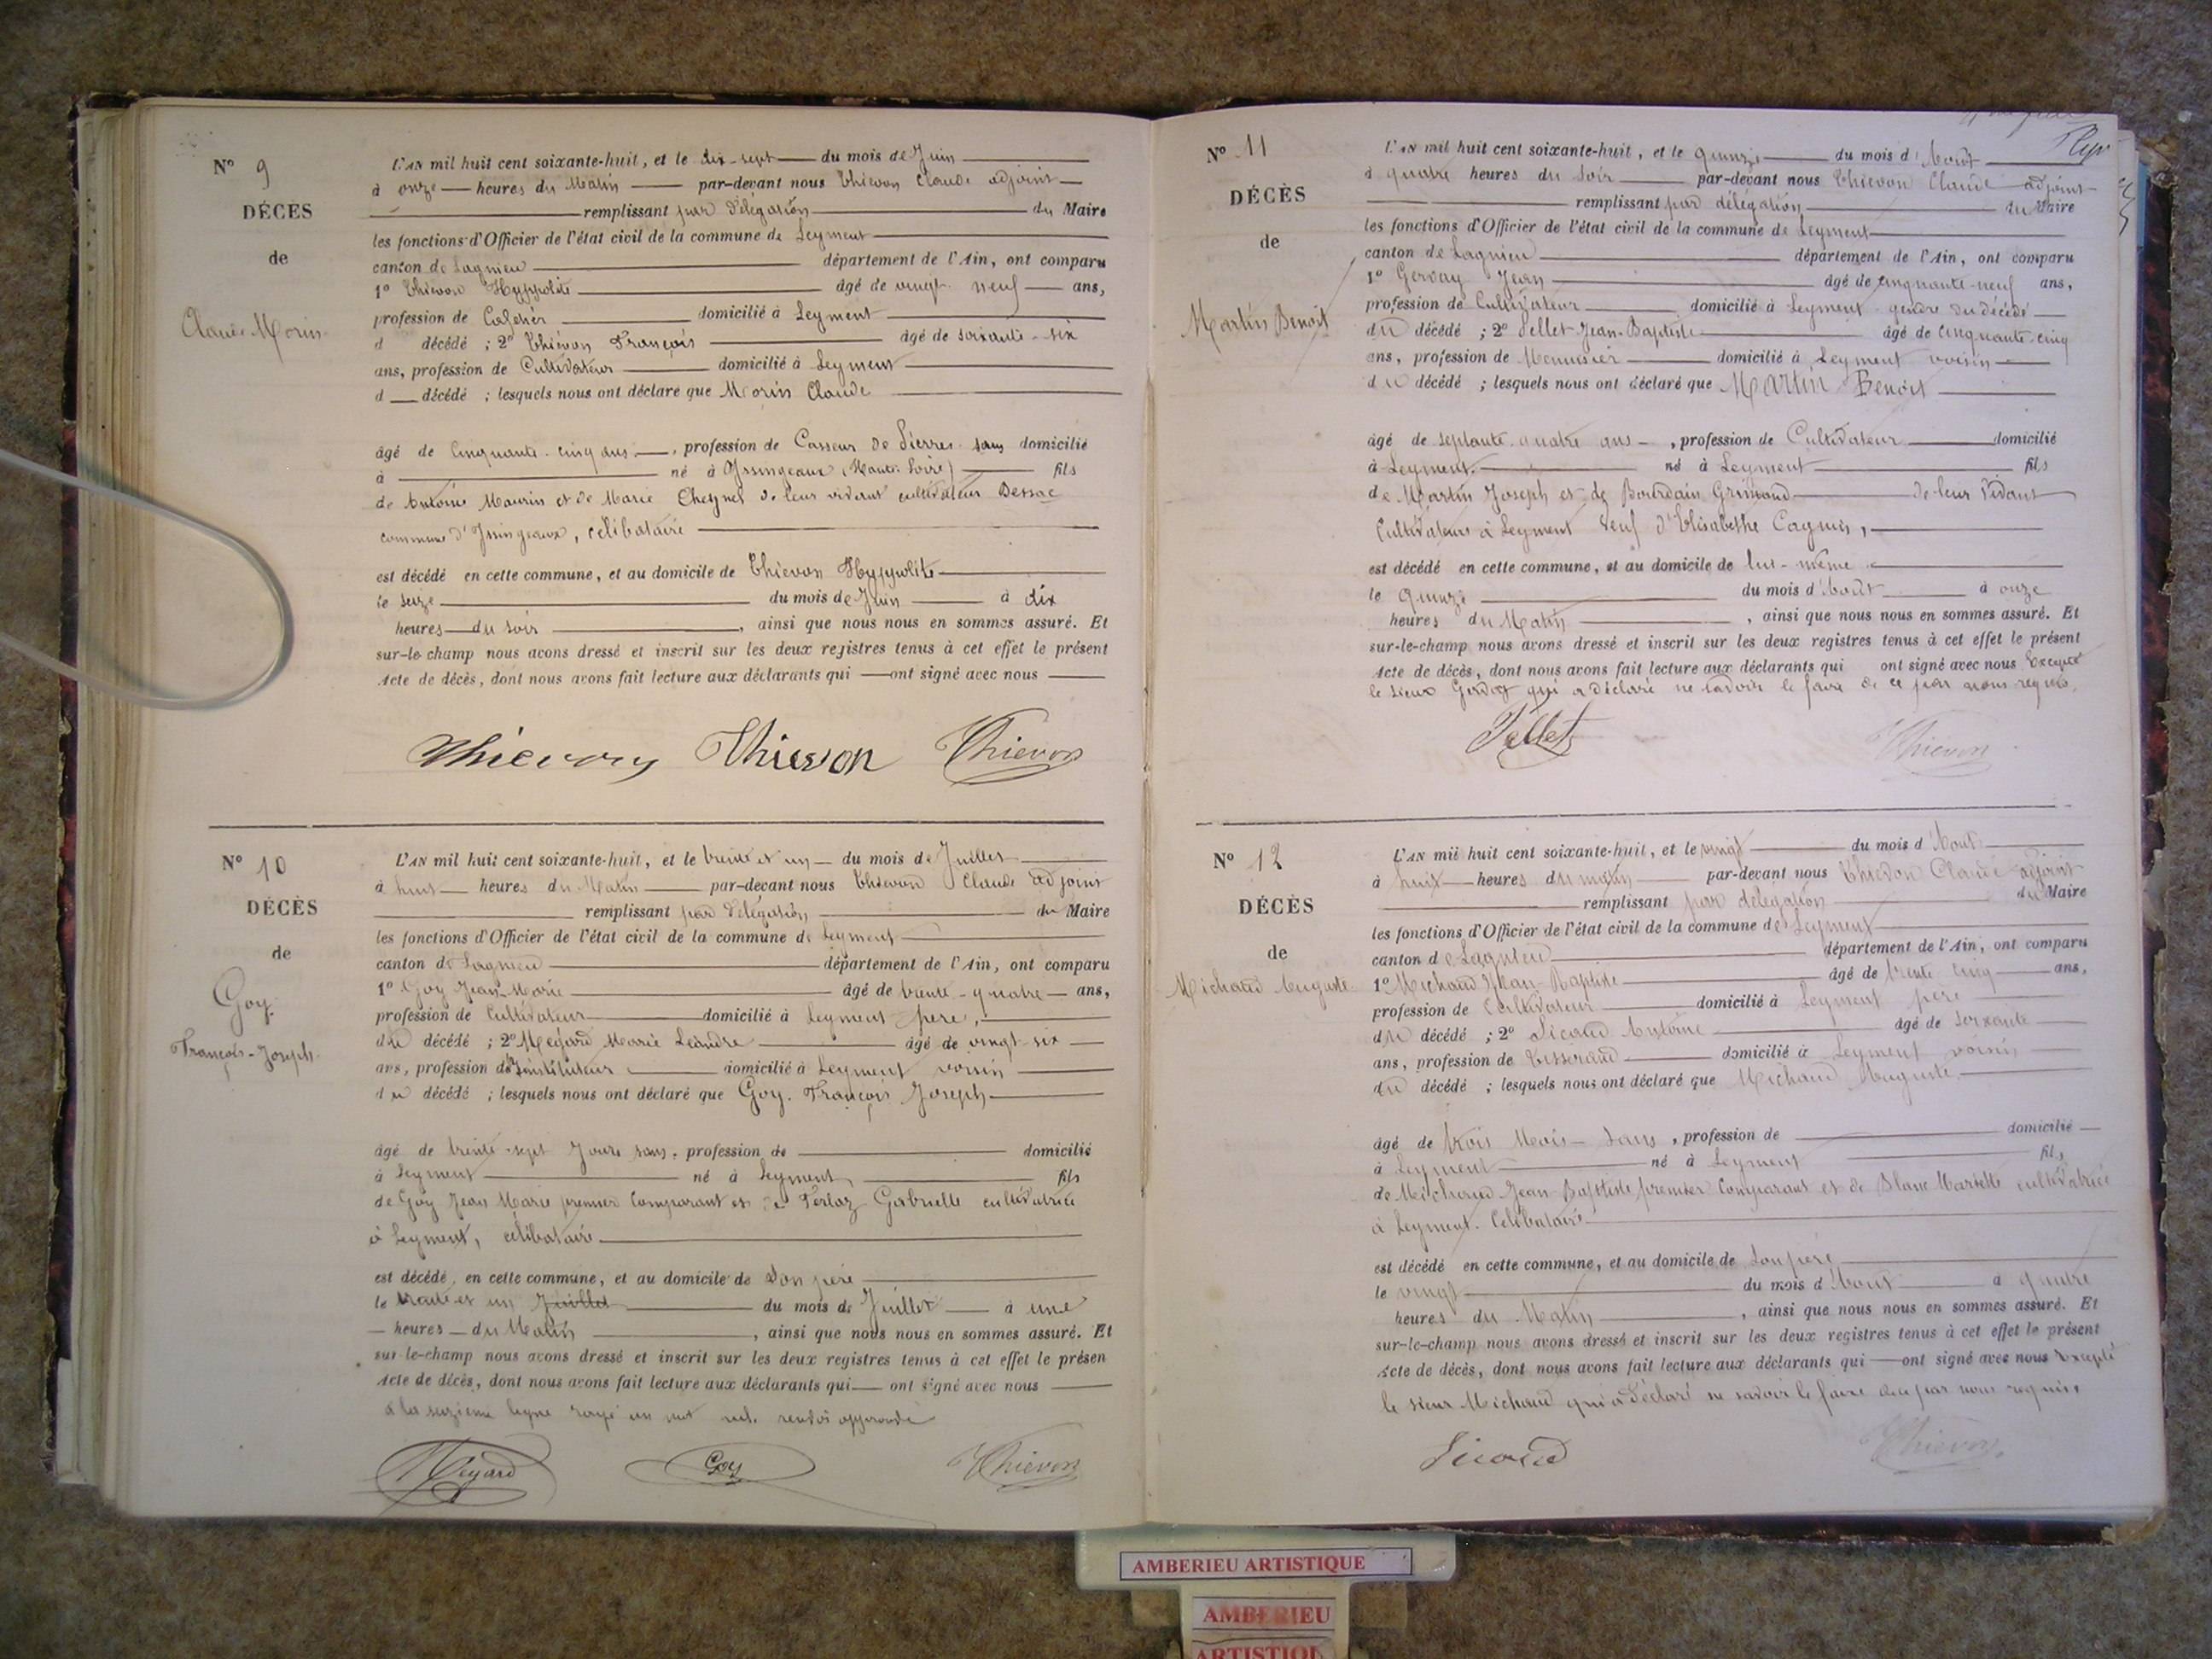 N° 9
DÉCÈS
de
Claude Morin
L'AN mil huit cent soixante-huit, et le dix-sept du mois de Juin
à onze heures du Matin par-devant nous Thievon Claude adjoint
remplissant par délégation du Maire
les fonctions d'Officier de l'état civil de la commune de Leyment
canton de Lagnieu département de l'Ain, ont comparu
1° Thievon Hyppolite âgé de vingt neuf ans,
profession de domicilié à Leyment
d décédé ; 2° Thievon François âgé de soixante-six
ans, profession de Cultivateur domicilié à Leyment
d décédé ; lesquels nous ont déclaré que Morin Claude
âgé de Cinquante-cinq ans, profession de Casseur de Pierres sans domicilié
à né à Yssingeaux (Haute Loire) fils
de Antoine Maurin et de Marie Cheynel de leur vivant cultivateur Bessac
commune d'Issingeaux, célibataire
est décédé en cette commune, et au domicile de Thievon Hyppolite
le seize du mois de Juin à dix
heures du soir, ainsi que nous nous en sommes assuré. Et
sur-le-champ nous avons dressé et inscrit sur les deux registres tenus à cet effet le présent
Acte de décès, dont nous avons fait lecture aux déclarants qui ont signé avec nous
Thievon Thievon Thievon
N° 10
DÉCÈS
de
Goy
François-Joseph
L'AN mil huit cent soixante-huit, et le trente et un du mois de Juillet
à huit heures du Matin par-devant nous Thievon Claude adjoint
remplissant par délégation du Maire
les fonctions d'Officier de l'état civil de la commune de Leyment
canton de Lagnieu département de l'Ain, ont comparu
1° Goy Jean-Marie âgé de trente-quatre ans,
profession de Cultivateur domicilié à Leyment père,
du décédé ; 2° Mégard Marie Léandre âgé de vingt-six
ans, profession d'Instituteur domicilié à Leyment voisin
du décédé ; lesquels nous ont déclaré que Goy François Joseph
âgé de trente-sept jours sans, profession de domicilié
à Leyment né à Leyment fils
de Goy Jean Marie premier Comparant et de Perlaz Gabrielle cultivatrice
à Leyment, célibataire
est décédé en cette commune, et au domicile de son père
le trente et un Juillet du mois de Juillet à une
heures du Matin, ainsi que nous nous en sommes assuré. Et
sur-le-champ nous avons dressé et inscrit sur les deux registres tenus à cet effet le présen
Acte de décès, dont nous avons fait lecture aux déclarants qui ont signé avec nous
à la seizième ligne rayé un mot nul. renvoi approuvé
Mégard Goy Thievon
N° 11
DÉCÈS
de
Martin Benoit
L'AN mil huit cent soixante-huit, et le quinze du mois d'Août
à quatre heures du soir par-devant nous Thievon Claude adjoint
remplissant par délégation du Maire
les fonctions d'Officier de l'état civil de la commune de Leyment
canton de Lagnieu département de l'Ain, ont comparu
1° Gervay Jean âgé de Cinquante-neuf ans,
profession de Cultivateur domicilié à Leyment gendre du décédé
du décédé ; 2° Pellet Jean-Baptiste âgé de Cinquante-cinq
ans, profession de Menuisier domicilié à Leyment voisin
du décédé ; lesquels nous ont déclaré que Martin Benoit
âgé de septante-quatre ans, profession de Cultivateur domicilié
à Leyment né à Leyment fils
de Martin Joseph et de Bourdain Grimaud de leur vivant
Cultivateurs à Leyment veuf d'Elisabethe Cagnin,
est décédé en cette commune, et au domicile de lui-même
le quinze du mois d'Août à onze
heures du Matin, ainsi que nous nous en sommes assuré. Et
sur-le-champ nous avons dressé et inscrit sur les deux registres tenus à cet effet le présent
Acte de décès, dont nous avons fait lecture aux déclarants qui ont signé avec nous Excepté
le sieur Gervay qui a déclaré ne savoir le faire de ce par nous requis,
Pellet Thievon
N° 12
DÉCÈS
de
Michaud Auguste
L'AN mil huit cent soixante-huit, et le vingt du mois d'Aout
à huit heures du matin par-devant nous Thievon Claude adjoint
remplissant par délégation du Maire
les fonctions d'Officier de l'état civil de la commune de Leyment
canton de Lagnieu département de l'Ain, ont comparu
1° Michaud Jean-Baptiste âgé de trente cinq ans,
profession de Cultivateur domicilié à Leyment père
du décédé ; 2° Sicaud Antoine âgé de soixante
ans, profession de Tisserand domicilié à Leyment voisin
du décédé ; lesquels nous ont déclaré que Michaud Auguste
âgé de trois Mois sans, profession de domicilié
à Leyment né à Leyment fils
de Michaud Jean-Baptiste premier Comparant et de Blanc Mariette cultivatrice
à Leyment. Célibataire
est décédé en cette commune, et au domicile de son père
le vingt du mois d'Aout à quatre
heures du Matin, ainsi que nous nous en sommes assuré. Et
sur-le-champ nous avons dressé et inscrit sur les deux registres tenus à cet effet le présent
Acte de décès, dont nous avons fait lecture aux déclarants qui ont signé avec nous Excepté
le sieur Michaud qui a déclaré ne savoir le faire de ce par nous requis,
Sicaud Thievon
AMBERIEU ARTISTIQUE
AMBERIEU
ARTISTIQU